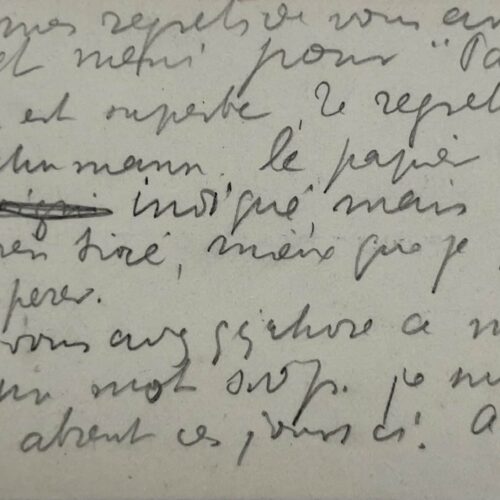 mes regrets de vous
et merci pour "Pa
est superbe, je regret
humann. le papier
indigué, mais
bien tiré, mieux que je
perer.
vous avez qqchose a m
un mot svp. je
absent ces jours ci. A